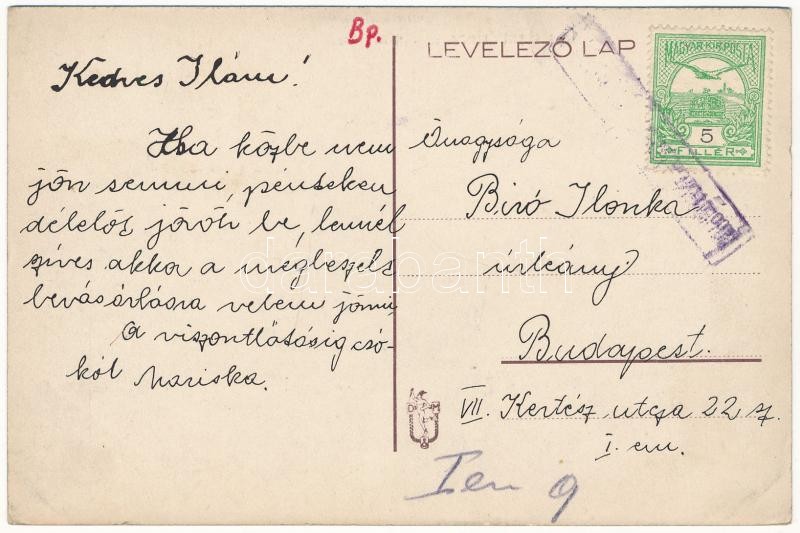 Bp.
LEVELEZŐ LAP
MAGYAR KIR. POSTA
5
FILLÉR
Kedves Ilám!
Ha közbe nem
jön semmi, pénteken
délelőt jövök be, lennél
szíves akkor a megbeszélt
bevásárlásra velem jönni,
a viszontlátásig csó-
kól Mariska.
Őnagysága
Biró Ilonka
úrleány
Budapest.
VII. Kertész utcza 22 sz.
I. em.
I em 9
D M
darabanth